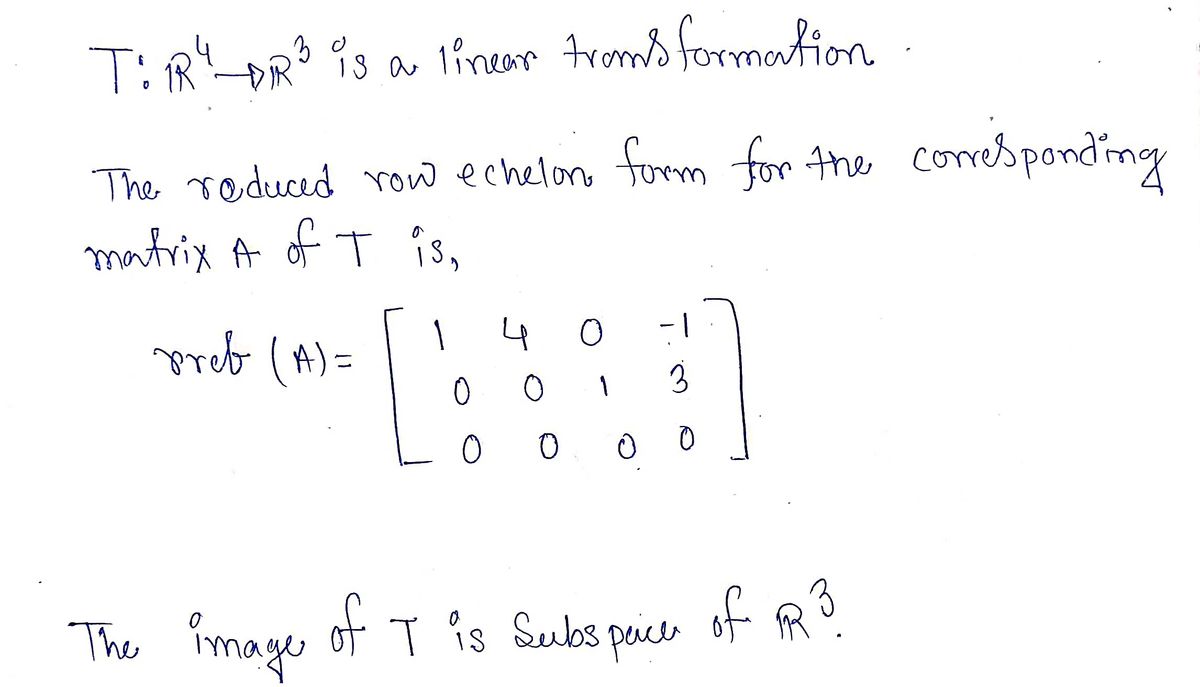 T: ℝ⁴→ℝ³ is a linear transformation.
The reduced row echelon form for the corresponding
matrix A of T is,
rref (A) = [ 1 4 0 -1
0 0 1 3
0 0 0 0 ]
The image of T is Subspace of ℝ³.